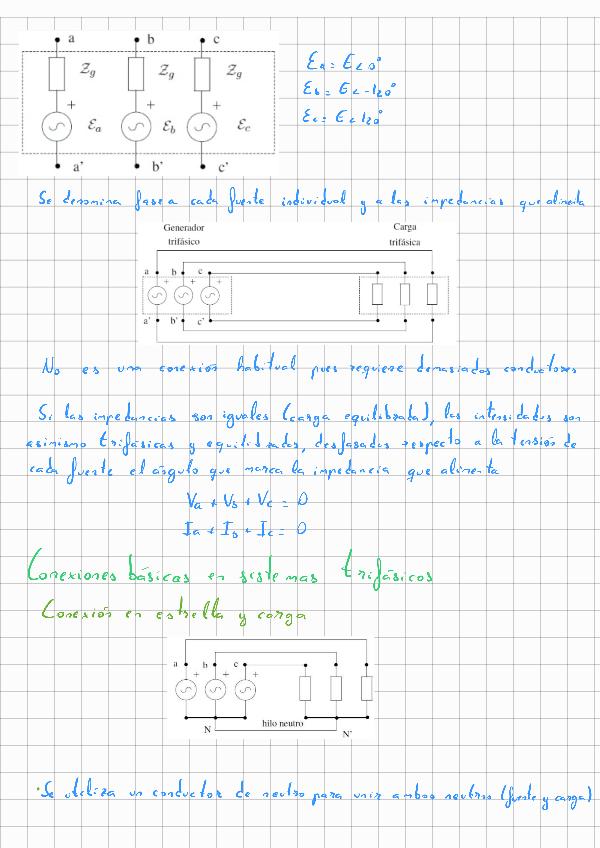 a b c
Z_g Z_g Z_g
+ + +
ℰ_a ℰ_b ℰ_c
a' b' c'
ℰa = E∠0°
ℰb = E∠-120°
ℰc = E∠120°
Se denomina fase a cada fuente individual y a las impedancias que alimenta
Generador trifásico
Carga trifásica
a b c
+ + +
a' b' c'
No es una conexión habitual pues requiere demasiados conductores
Si las impedancias son iguales (carga equilibrada), las intensidades son
asimismo trifásicas y equilibradas, desfasadas respecto a la tensión de
cada fuente el ángulo que marca la impedancia que alimenta
Va + Vb + Vc = 0
Ia + Ib + Ic = 0
Conexiones básicas en sistemas trifásicos
Conexión en estrella y carga
a b c
+ + +
N hilo neutro N'
·Se utiliza un conductor de neutro para unir ambos neutros (fuente y carga)